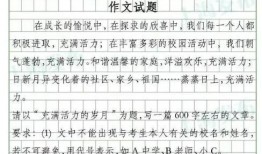 作文试题
在成长的愉悦中，在探求的欣喜中，我们每一个人都
积极进取，充满活力；在丰富多彩的校园活动中，我们朝
气蓬勃，充满活力。和谐温馨的家庭，洋溢欢乐，充满活力；
日新月异变化着的社区、家乡、祖国……蒸蒸日上，充满活
力。
请以“充满活力的岁月”为题，写一篇600字左右的文章。
要求：(1) 文中不能出现与考生本人有关的校名和姓名，
若不可避免，用代号表示，如A中学、B老师、小C。